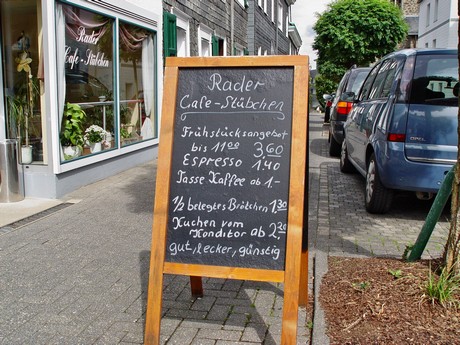 Rader
Cafe-Stübchen
Rader
Cafe-Stübchen
Frühstücksangebot
bis 11⁰⁰ 3.60
Espresso 1.40
Tasse Kaffee ab 1-
½ belegtes Brötchen 1.30
Kuchen vom
Konditor ab 2.20
gut, lecker, günstig
OPEL